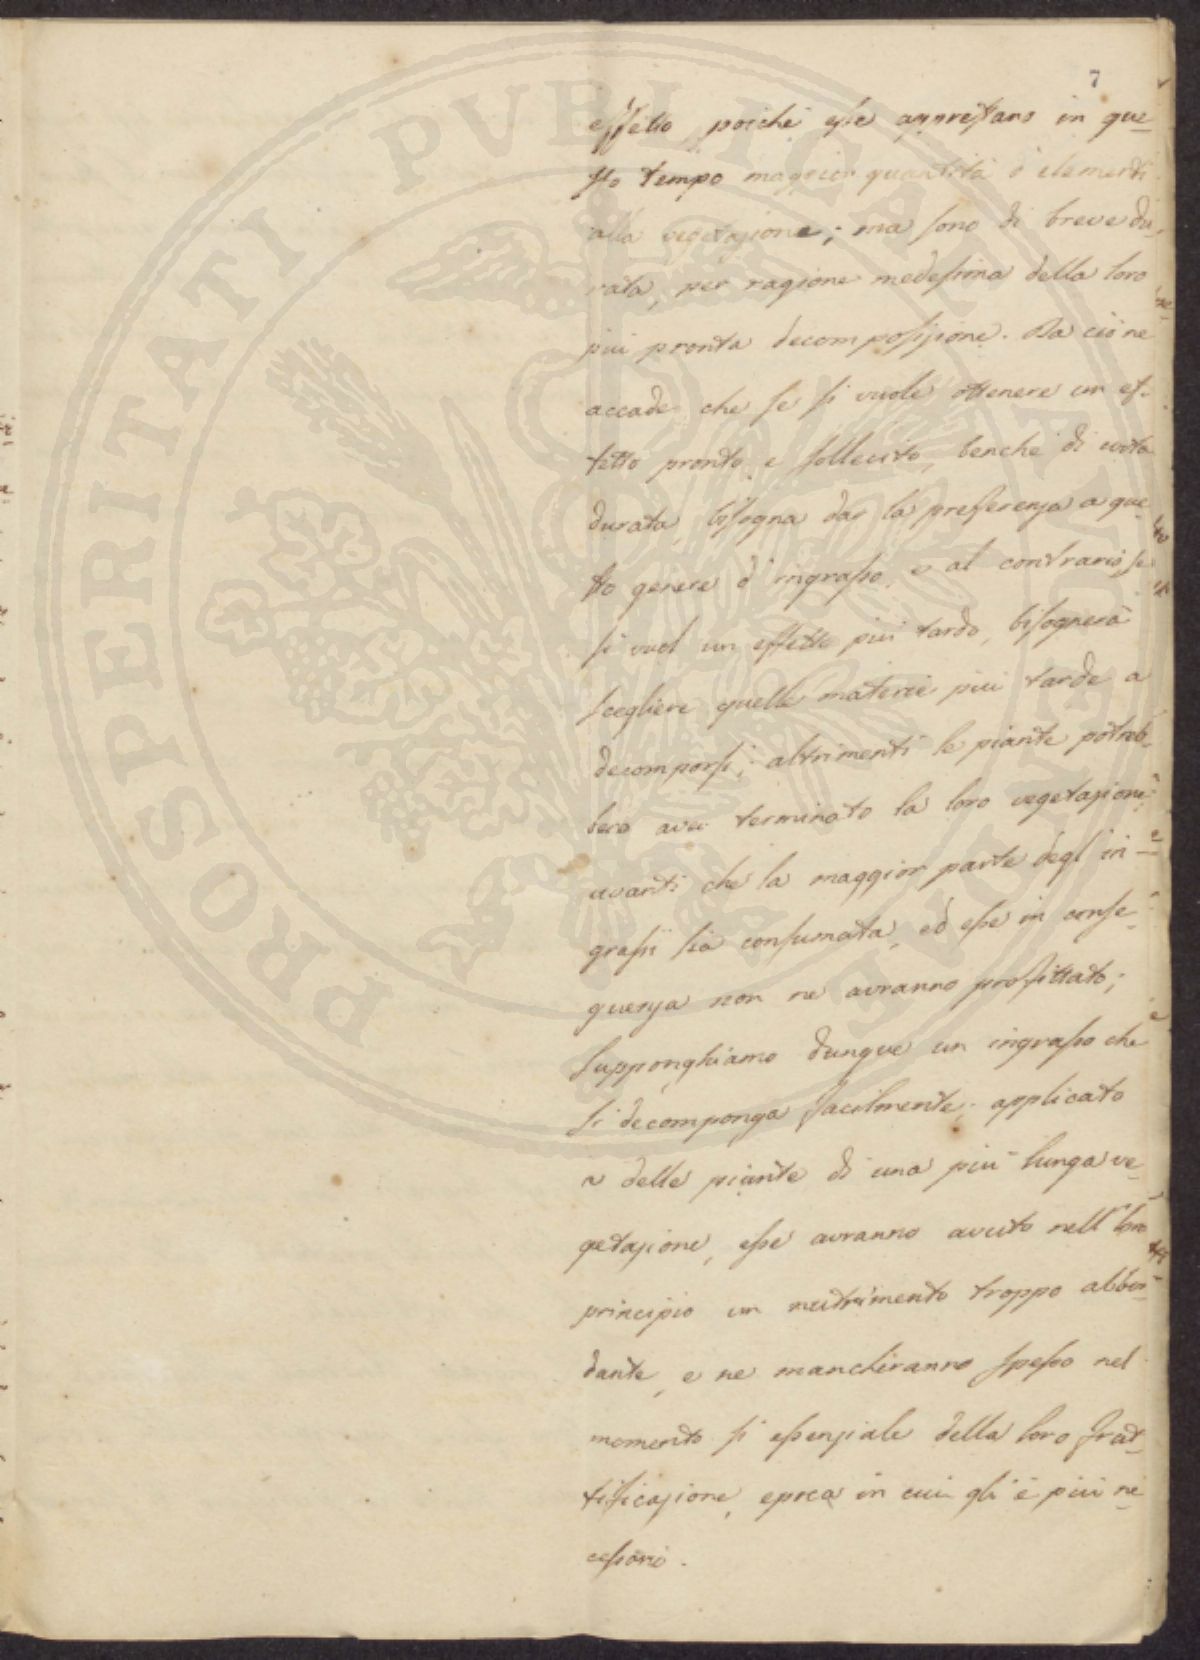 7
effetto, poichè esse apprestano in que-
sto tempo maggior quantità d'elementi
alla vegetazione; ma sono di breve du-
rata, per ragione medesima della loro
più pronta decomposizione. Da ciò ne
accade che se si vuole ottenere un ef-
fetto pronto e sollecito, benchè di corta
durata, bisogna dar la preferenza a que-
sto genere d'ingrasso, e al contrario, se
si vuol un effetto più tardo, bisognerà
scegliere quelle materie più tarde a
decomporsi; altrimenti le piante potreb-
bero aver terminato la loro vegetazione
avanti che la maggior parte degl'in-
grassi sia consumata, ed esse in conse-
quenza non ne avranno profittato;
Supponghiamo dunque un ingrasso che
si decomponga facilmente; applicato
a delle piante di una più lunga ve-
getazione, esse avranno avuto nell loro
principio un nutrimento troppo abbon-
dante, e ne mancheranno spesso nel
momento sì essenziale della loro frut-
tificazione, epoca in cui gli è più ne-
cessario.
PROSPERITATI PVBLICAE AVGENDAE